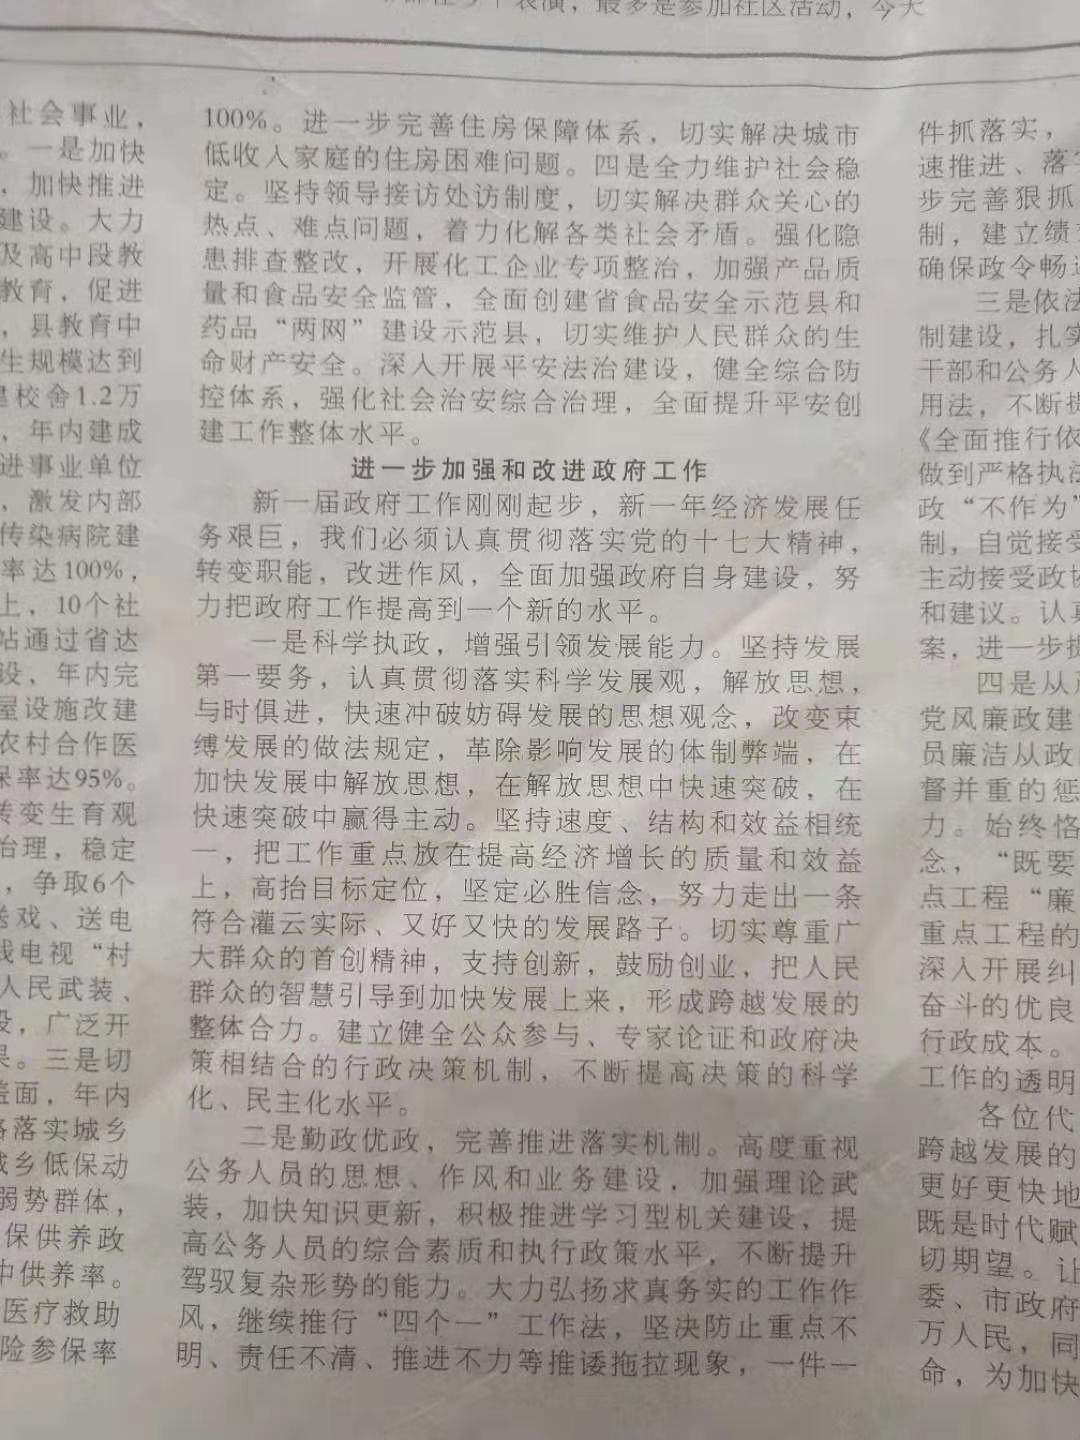 最多是参加社区活动，今天
社会事业，
。一是加快
，加快推进
建设。大力
及高中段教
教育，促进
，县教育中
生规模达到
校舍1.2万
，年内建成
进事业单位
，激发内部
传染病院建
率达100%，
上，10个社
站通过省达
设，年内完
屋设施改建
农村合作医
保率达95%。
转变生育观
治理，稳定
，争取6个
送戏、送电
线电视“村
人民武装、
设，广泛开
果。三是切
盖面，年内
落实城乡
城乡低保动
弱势群体，
保供养政
中供养率。
医疗救助
险参保率
100%。进一步完善住房保障体系，切实解决城市
低收入家庭的住房困难问题。四是全力维护社会稳
定。坚持领导接访处访制度，切实解决群众关心的
热点、难点问题，着力化解各类社会矛盾。强化隐
患排查整改，开展化工企业专项整治，加强产品质
量和食品安全监管，全面创建省食品安全示范县和
药品“两网”建设示范县，切实维护人民群众的生
命财产安全。深入开展平安法治建设，健全综合防
控体系，强化社会治安综合治理，全面提升平安创
建工作整体水平。
进一步加强和改进政府工作
新一届政府工作刚刚起步，新一年经济发展任
务艰巨，我们必须认真贯彻落实党的十七大精神，
转变职能，改进作风，全面加强政府自身建设，努
力把政府工作提高到一个新的水平。
一是科学执政，增强引领发展能力。坚持发展
第一要务，认真贯彻落实科学发展观，解放思想，
与时俱进，快速冲破妨碍发展的思想观念，改变束
缚发展的做法规定，革除影响发展的体制弊端，在
加快发展中解放思想，在解放思想中快速突破，在
快速突破中赢得主动。坚持速度、结构和效益相统
一，把工作重点放在提高经济增长的质量和效益
上，高抬目标定位，坚定必胜信念，努力走出一条
符合灌云实际、又好又快的发展路子。切实尊重广
大群众的首创精神，支持创新，鼓励创业，把人民
群众的智慧引导到加快发展上来，形成跨越发展的
整体合力。建立健全公众参与、专家论证和政府决
策相结合的行政决策机制，不断提高决策的科学
化、民主化水平。
二是勤政优政，完善推进落实机制。高度重视
公务人员的思想、作风和业务建设，加强理论武
装，加快知识更新，积极推进学习型机关建设，提
高公务人员的综合素质和执行政策水平，不断提升
驾驭复杂形势的能力。大力弘扬求真务实的工作作
风，继续推行“四个一”工作法，坚决防止重点不
明、责任不清、推进不力等推诿拖拉现象，一件一
件抓落实，
速推进、落实
步完善狠抓
制，建立绩
确保政令畅
三是依法
制建设，扎实
干部和公务人
用法，不断提
《全面推行依
做到严格执法
政“不作为”
制，自觉接受
主动接受政协
和建议。认真
案，进一步提
四是从严
党风廉政建
员廉洁从政
督并重的惩
力。始终恪
念，“既要
点工程“廉
重点工程的
深入开展纠
奋斗的优良
行政成本。
工作的透明
各位代
跨越发展的
更好更快地
既是时代赋
切期望。让
委、市政府
万人民，同
命，为加快